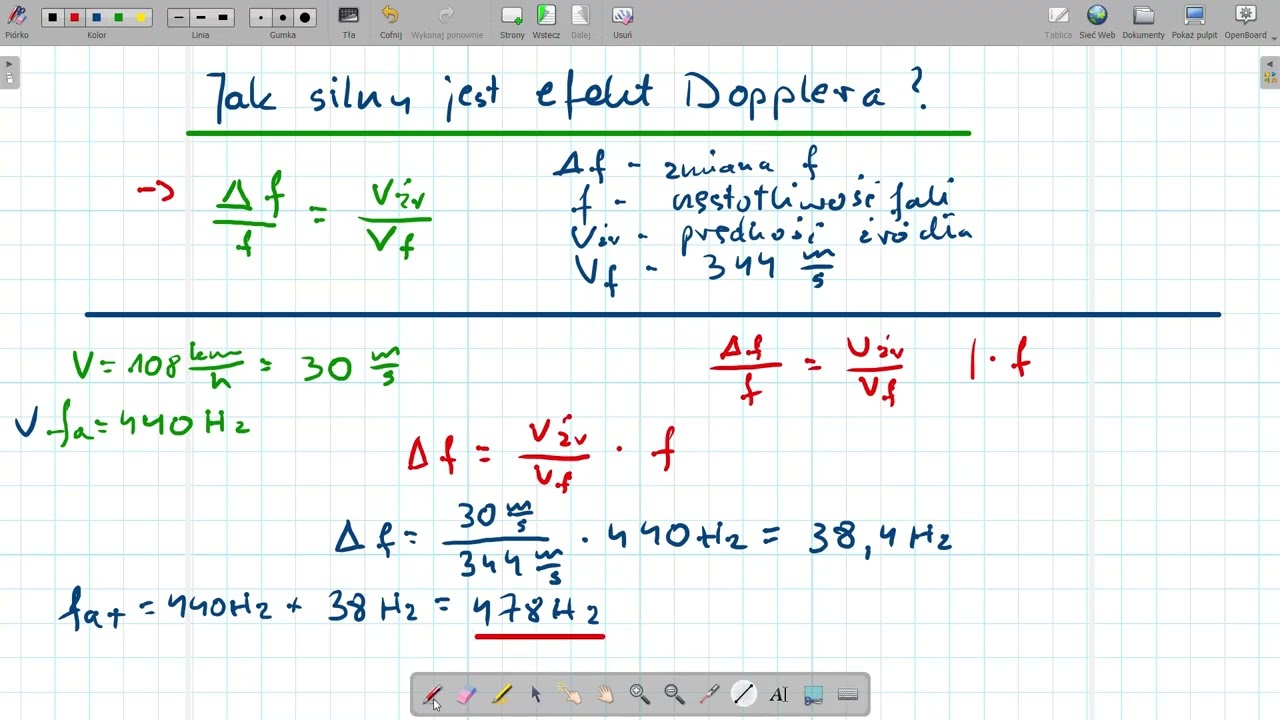 Pióro Kolor Linia Gumka Tła Cofnij Wykonaj ponownie Strony Wstecz Dalej Usuń Tablica Sieć Web Dokumenty Pokaż pulpit OpenBoard
Jak silny jest efekt Dopplera?
→ Δf/f = Vźr/Vf
Δf - zmiana f
f - częstotliwość fali
Vźr - prędkość źródła
Vf - 344 m/s
V = 108 km/h = 30 m/s
Δf/f = Vźr/Vf | · f
V fa = 440 Hz
Δf = Vźr/Vf · f
Δf = 30 m/s / 344 m/s · 440 Hz = 38,4 Hz
fa+ = 440 Hz + 38 Hz = 478 Hz
AI